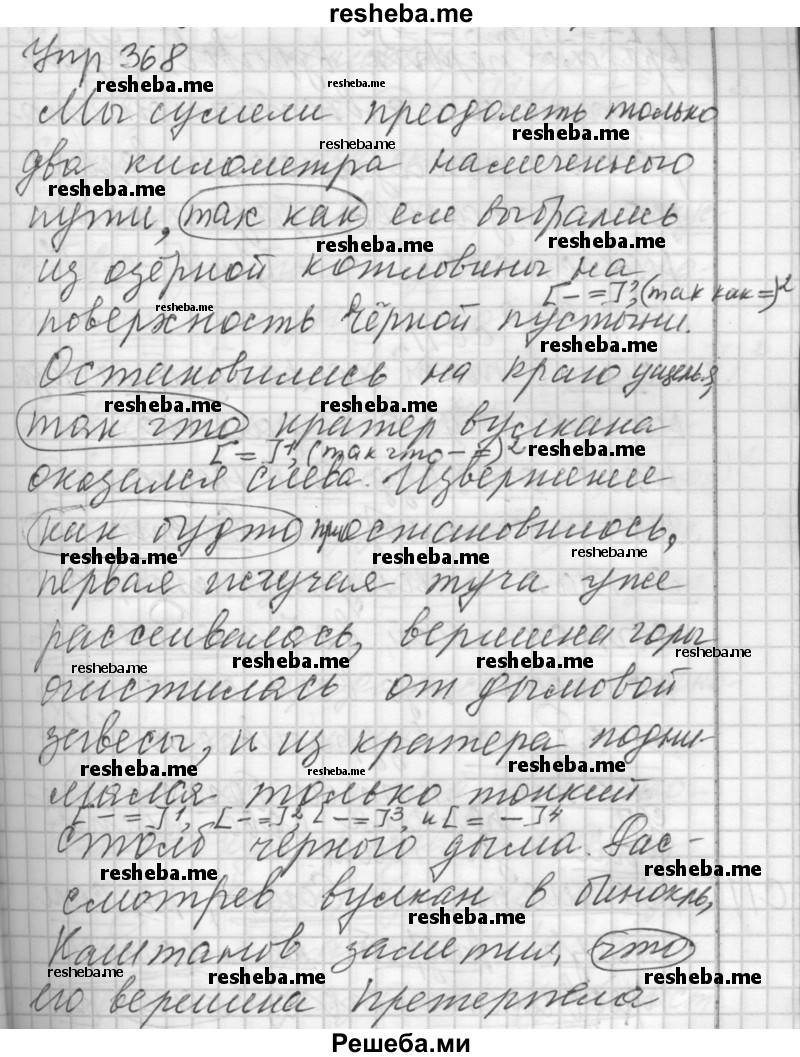 resheba.me
Упр 368
resheba.me resheba.me
Мы сумели преодолеть только
resheba.me resheba.me
два километра намеченного
resheba.me
пути, так как еле выбрались
resheba.me resheba.me
из озёрной котловины на
[- =]¹, (так как =)²
поверхность Чёрной пустыни.
resheba.me resheba.me
Остановились на краю ущелья,
resheba.me resheba.me
так что кратер вулкана
[=]¹, (так что - =)² resheba.me
оказался слева. Извержение
как будто приостановилось,
resheba.me resheba.me resheba.me
первая жгучая туча уже
рассеивалась, вершина горы
resheba.me resheba.me resheba.me resheba.me
очистилась от дымовой
завесы, и из кратера подни-
resheba.me resheba.me resheba.me
мался только тонкий
[- =]¹, [- =]², [- =]³, и [= -]⁴
столб чёрного дыма. Рас-
resheba.me resheba.me
смотрев вулкан в бинокль,
resheba.me
Каштанов заметил, что
resheba.me resheba.me resheba.me
его вершина претерпела
Решеба.ми